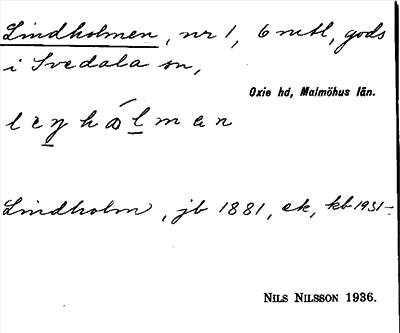 Lindholmen, nr 1, 6 mtl, gods
i Svedala sn,
Oxie hd, Malmöhus län.
Lindholm, jb 1881, ek, kb 1931-.
NILS NILSSON 1936.